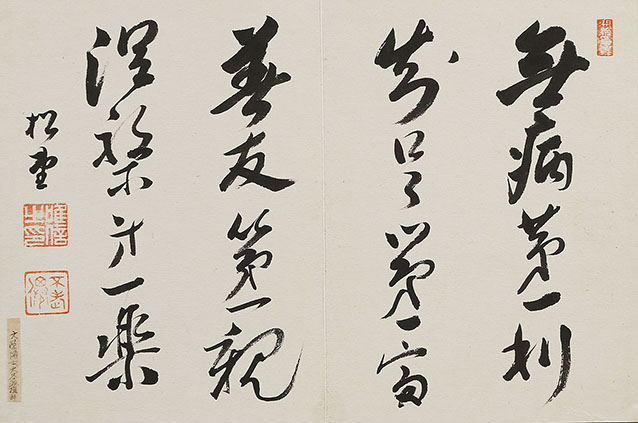 無病第一利
知足第一富
善友第一親
涅槃第一樂
松